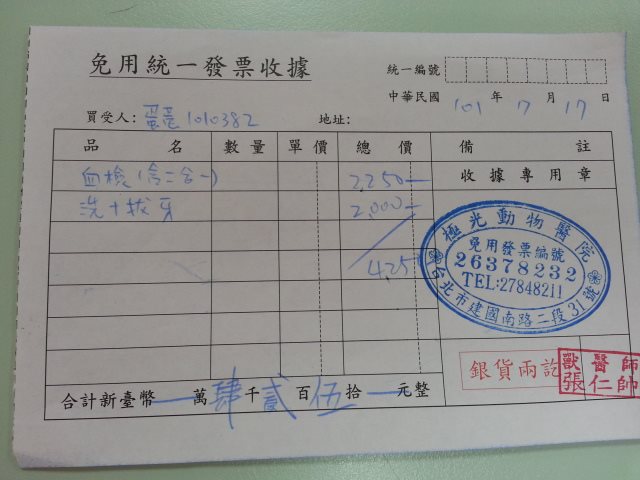 免用統一發票收據
統一編號
中華民國 101 年 7 月 17 日
買受人: 蛋蛋 1010382 地址:
品名 數量 單價 總價 備註
血檢(含二合一) 2,250- 收據專用章
洗+拔牙 2,000-
4,25
極光動物醫院
免用發票編號
26378232
TEL:27848211
台北市建國南路二段31號
銀貨兩訖
獸醫師
張仁帥
合計新臺幣 萬肆千貳百伍拾 元整